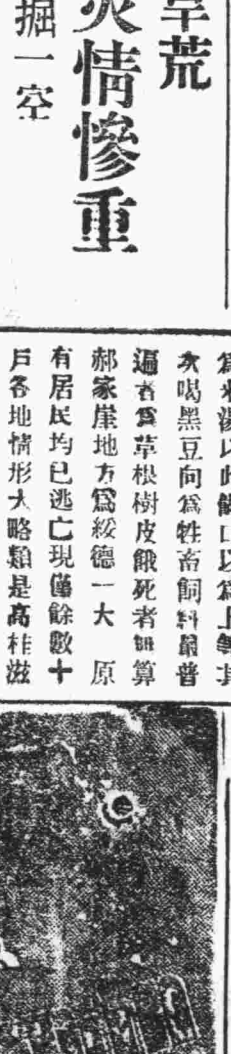 旱荒
災情慘重
掘一空
爲米湯以此餬口以爲上等其
次喝黑豆向爲牲畜飼料最普
遍者爲草根樹皮餓死者無算
郝家崖地方爲綏德一大　原
有居民均已逃亡現僅餘數十
戶各地情形大略類是高桂滋